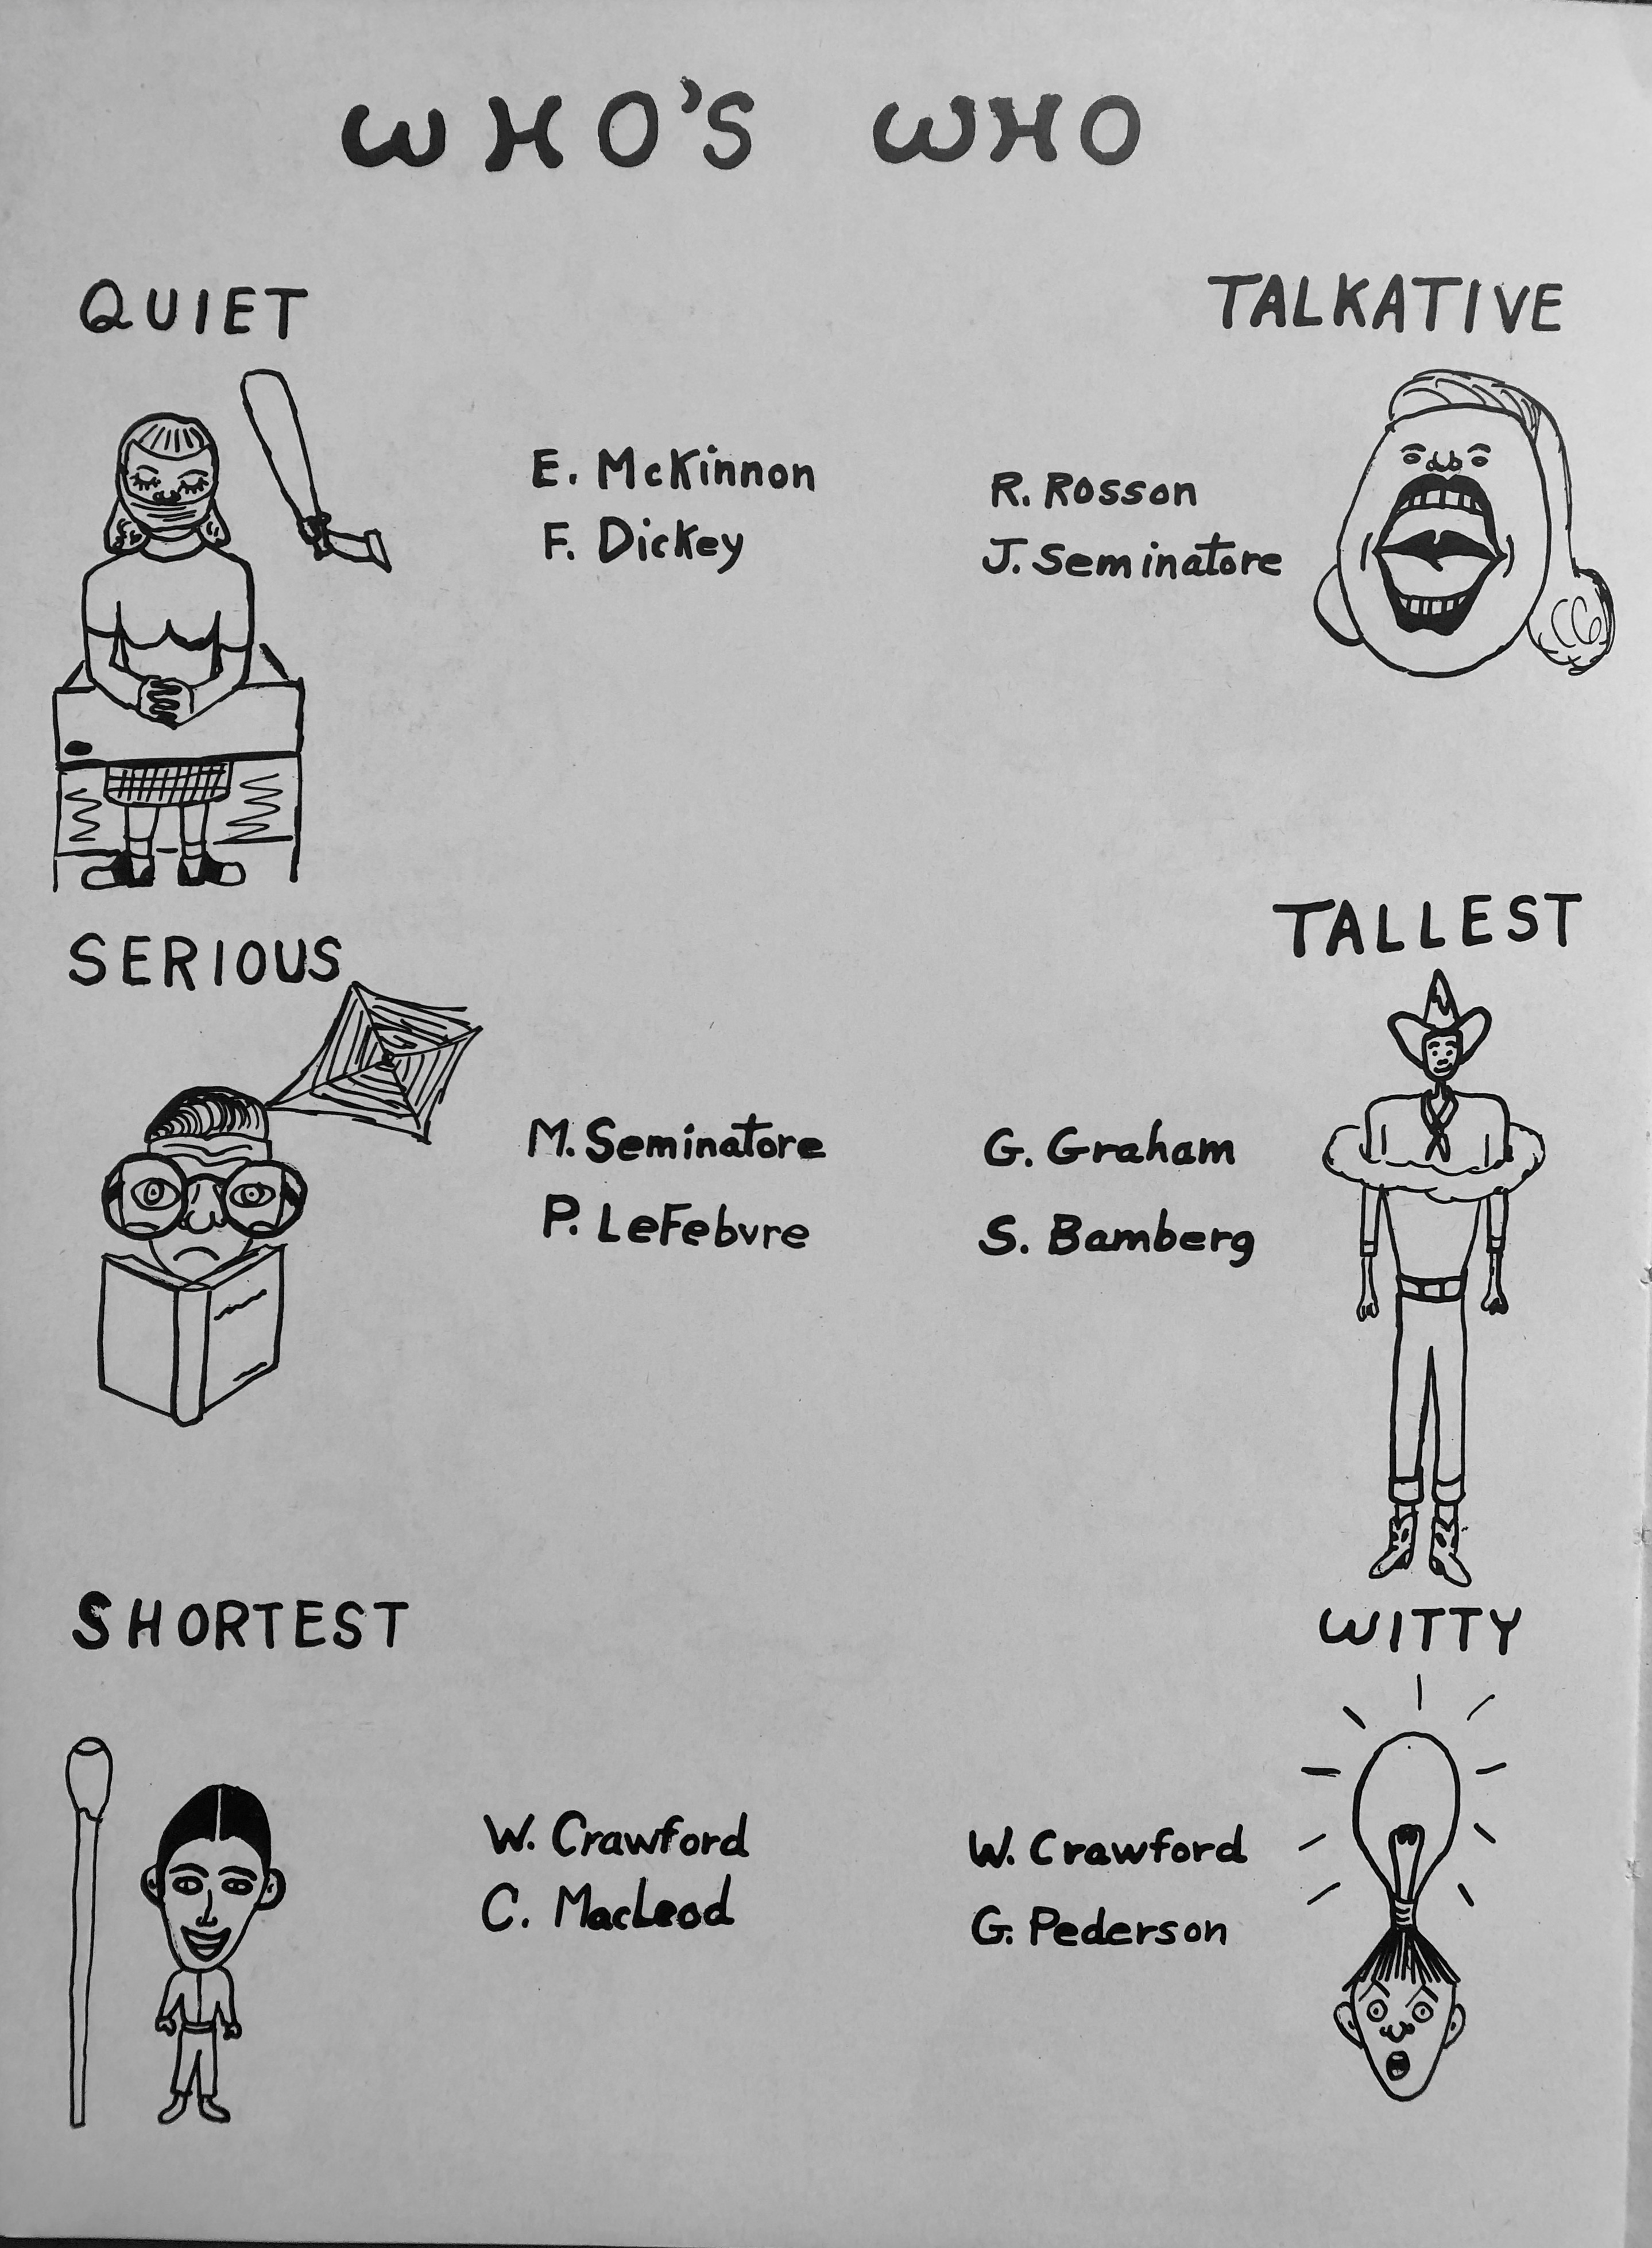 WHO'S WHO
QUIET
E. McKinnon
F. Dickey
TALKATIVE
R. Rosson
J. Seminatore
SERIOUS
M. Seminatore
P. LeFebvre
TALLEST
G. Graham
S. Bamberg
SHORTEST
W. Crawford
C. MacLeod
WITTY
W. Crawford
G. Pederson